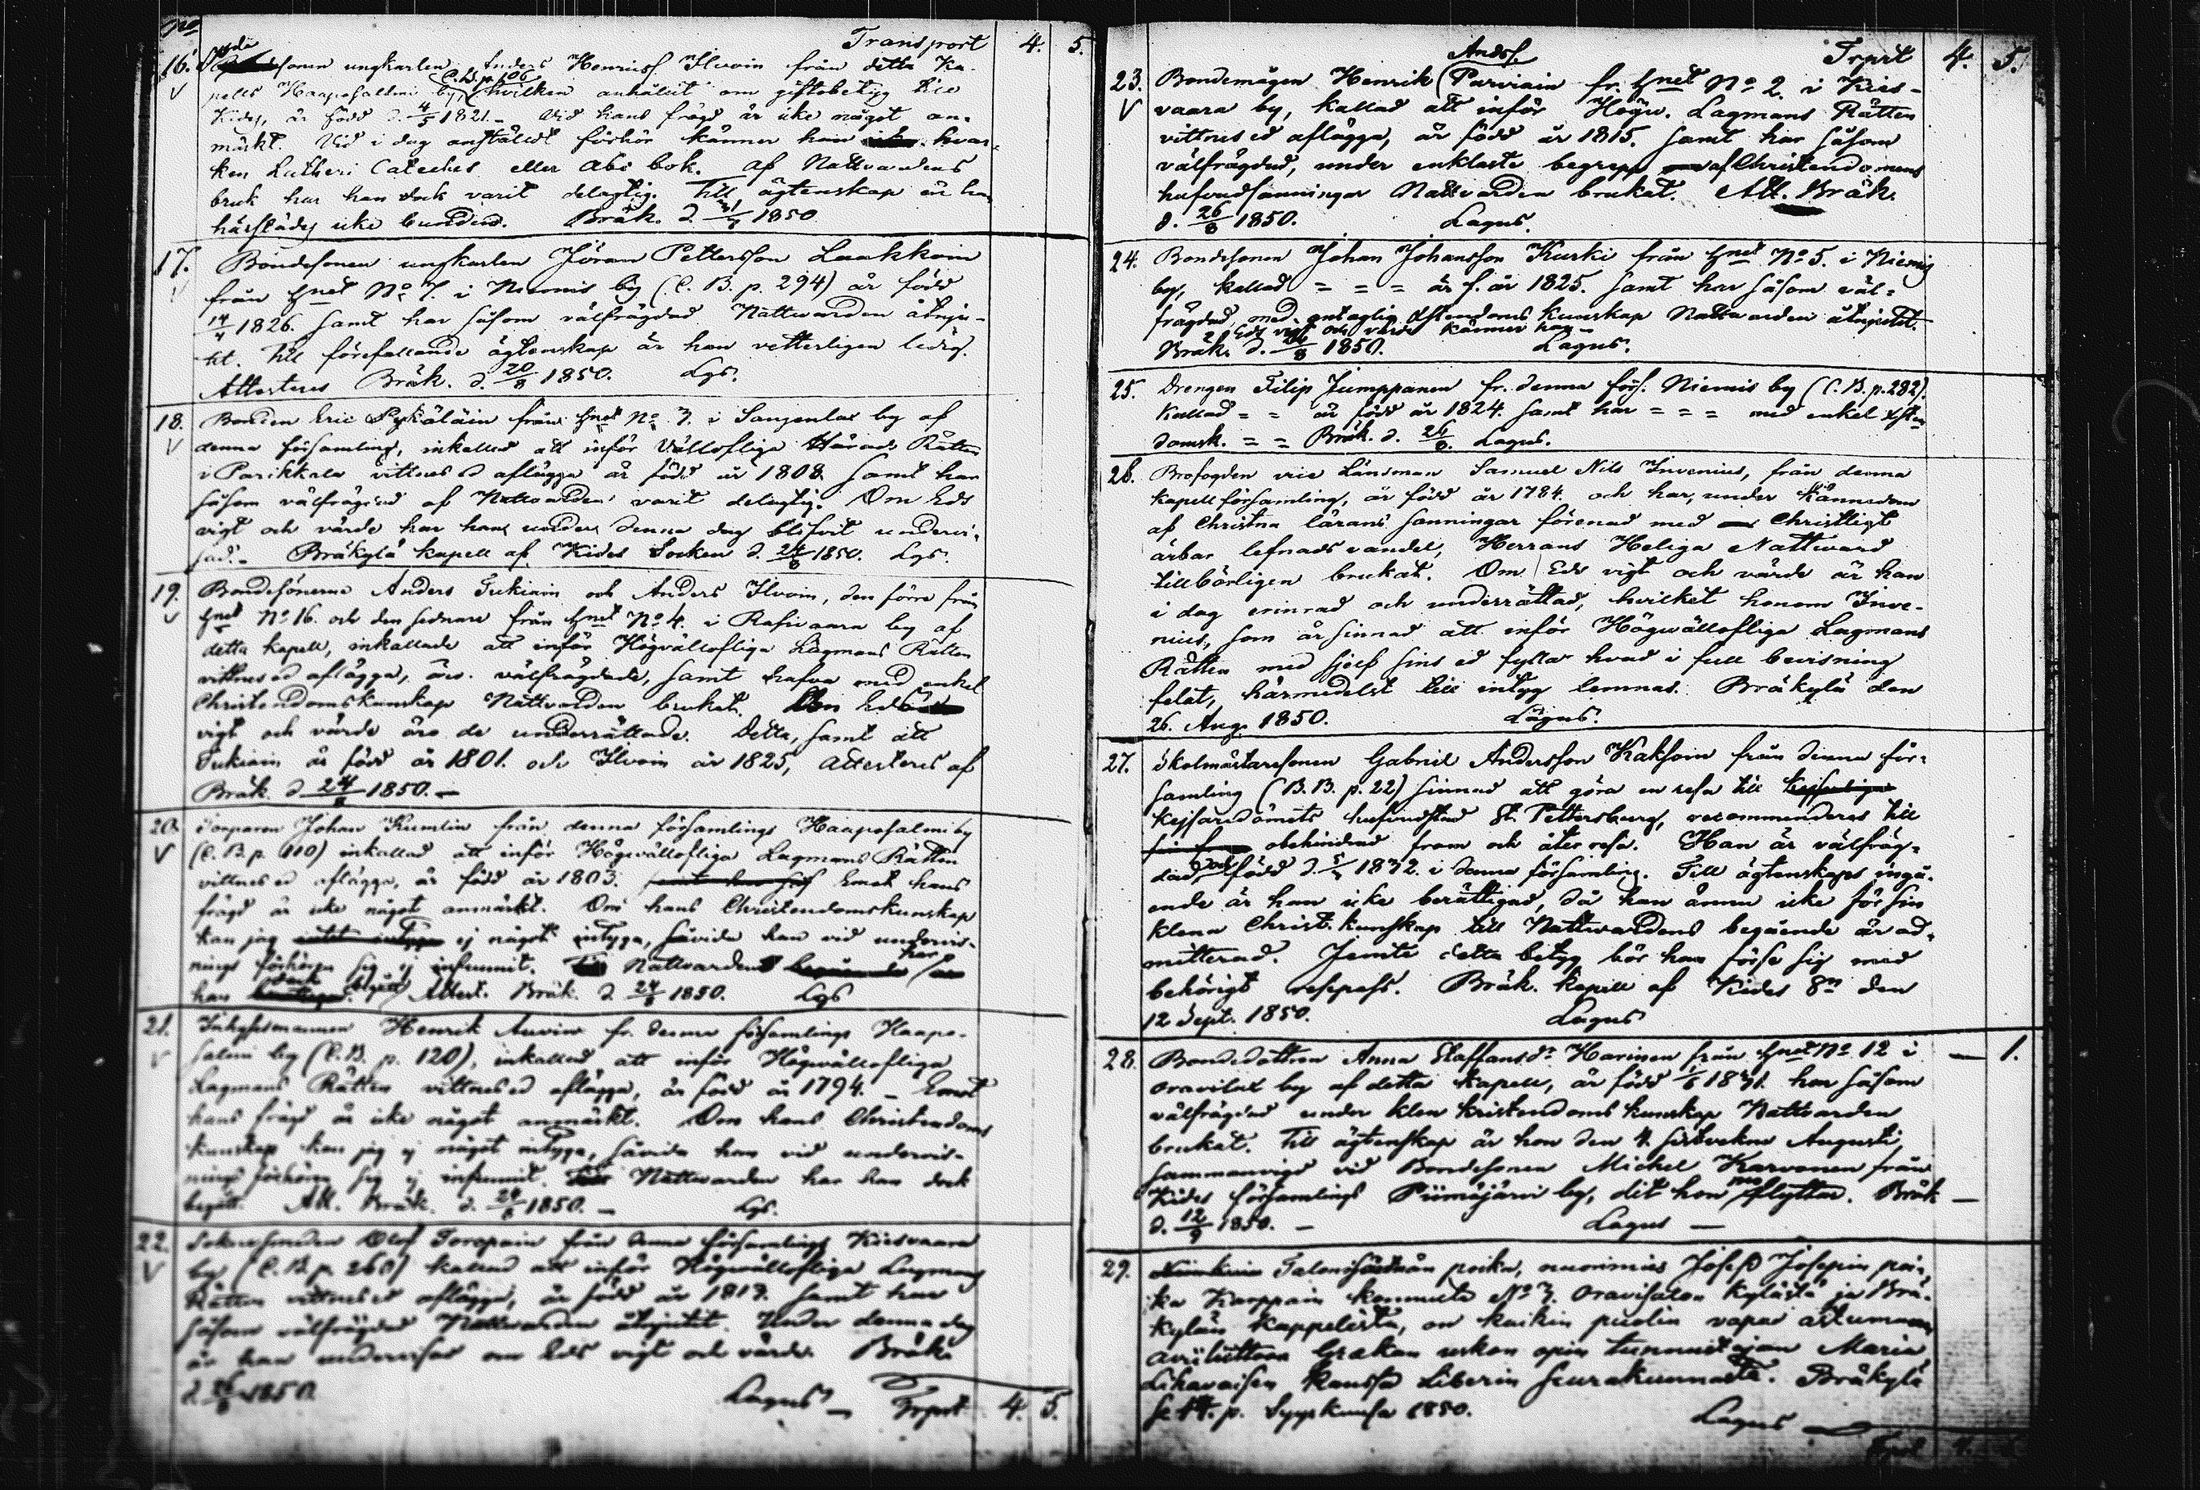 No
Transport 4. 5.
16. sonen ungkarlen Anders Henriks. Ilvoin från detta Ka-
pells Haapasalmi by, (C.B. p. 106) hvilken anhållit om giftobetyg till
Kides, är född d. 4/5 1821. – Vid hans frägd är icke något an-
märkt. Vid i dag anstäldt förhör känner han hvar-
ken Lutheri Cateches eller Abc bok. Af Nattvardens
bruk har han dock varit delagtig. Till ägtenskap är han
härstädes icke bunden. Bräk. d. 1850
17. Bondesonen ungkarlen Jöran Pettersson Laakkoin
från hnet No 7. i Niemis by (C. B. p. 294) är född
14/4 1826. samt har såsom välfrägdad Nattwarden åtnju-
tit. Till förefallande ägtenskap är han vetterligen ledig.
Attesteras Bräk. d. 20/8 1850. Lgs.
18. Bonden Eric Pykäläin från hnet No 7. i Sangenlax by af
denna församling, inkallad att inför Vällofliga Härads Rätten
i Parikkala vittnes ed aflägga är född år 1808. samt har
såsom välfrägdad af Nattvarden varit delagtig. Om Eds
vigt och värde har han under denna dag blifvit undervi-
sad. – Bräkylä kapell af Kides Socken d. 24/8 1850. Lgs.
19. Bondesönerne Anders Tukiain och Anders Ilvoin, den förre från
hnet No 16. och den sednare från hnet No 4. i Rasivaara by af
detta kapell, inkallade att inför Högvällofliga Lagmans Rätten
vittnes ed aflägga, äro välfrägdade, samt hafva med enkel
Christendomskunskap Nattvarden brukat. Om Eds
vigt och värde äro de underrättade. Detta, samt att
Tukiain är född år 1801. och Ilvoin år 1825, attesteras af
Bräk. d. 24/8 1850. –
20. Torparen Johan Kumlin från denna församlings Haapasalmi by
(C. B. p. 110) inkallad att inför Högvällofliga Lagmans Rätten
vittnes ed aflägga, är född år 1803. Emot hans
frägd är icke något anmärkt. Om hans Christendomskunskap
kan jag ej något intyga, såvida han vid undervis-
nings förhören sig ej infunnit. Nattvarden har
han dock begått. Attest. Bräk. d. 24/8 1850. Lgs
21. Inhysesmannen Henrik Auvin fr. denna församlings Haapa-
salmi by (C. B. p. 120), inkallad att inför Högvällofliga
Lagmans Rätten vittnes ed aflägga, är född år 1794. – Emot
hans frägd är icke något anmärkt. Om hans Christendoms
kunskap kan jag ej något intyga, såvida han vid undervis-
nings förhören sig ej infunnit. Nattvarden har han dock
begått. Att. Bräk. d. 24/8 1850. – Lgs.
22. Olof Toropain från denna församlings Kiesvaara
by (C. B. p. 260) kallad att inför Högvällofliga Lagmans
Rätten vittnes ed aflägga, är född år 1817. samt har
såsom välfrägdad Nattvarden åtnjutit. Under denna dag
är han undervisad om Eds vigt och värde. Bräk.
d. 26/8 1850. Lagus – Trprt 4. 5.
Trprt 4. 5.
23. Bondemågen Henrik Andsf. Parviain fr. hnet No 2. i Kies-
vaara by, kallad att inför Högw. Lagmans Rätten
vittnes ed aflägga, är född år 1815. samt har såsom
välfrägdad, under enklaste begrepp af Christendomens
hufvudsanningar Nattvarden brukat. Att. Bräk.
d. 26/8 1850. Lagus.
24. Bondesonen Johan Johansson Kurki från hnet No 5. i Niemis
by, kallad = = = är f. år 1825. samt har såsom väl-
frägdad med antaglig Xstendoms kunskap Nattvarden åtnjutit.
Eds vigt och värde känner han –
Bräk. d. 26/8 1850. Lagus.
25. Drengen Filip Jumppanen fr. denna förs. Niemis by (C. B. p. 282).
Kallad = = är född år 1824. samt har = = = med enkel Xsten
domsk. = = Bräk. d. 26/8. Lagus.
26. Brofogden vice Länsman Samuel Nils Invenius, från denna
kapellförsamling, är född år 1784. och har, under kännedom
af Christna lärans sanningar förenad med Christligt
ärbar lefnadsvandel, Herrans Heliga Nattvard
tillbörligen brukat. Om Eds vigt och värde är han
i dag erinrad och underrättad, hvilket honom Inve-
nius, som är sinnad att inför Högwällofliga Lagmans
Rätten med sjelf sins ed fylla hvad i full bevisning
felat, härmedelst till intyg lemnas. Bräkylä den
26. Aug. 1850. Lagus.
27. Skolmästaresonen Gabriel Andersson Kaksoin från denna för-
samling (B. B. p. 22) sinnad att göra en resa till
Kejsaredömets hufvudstad St. Pettersburg, recommenderas till
obehindrad fram och åter resa. Han är välfräg-
dad och född d. 5/5 1832. i denna församling. Till ägtenskaps ingå-
ende är han icke berättigad, då han ännu icke för sin
klena Christ. kunskap till Nattvardens begående är ad-
mitterad. Jemte detta betyg bör han förse sig med
behörigt respass. Bräk. kapell af Kides Sn den
12 Sept. 1850. Lagus
28. Bondedottren Anna Staffansdr Harinen från hnet No 12 i — 1.
Oravilax by af detta kapell, är född 1/6 1831. har såsom
välfrägdad under klen kristendoms kunskap Nattvarden
brukat. Till ägtenskap är hon den 4. sistvekne Augusti
sammanvigd vid Bondesonen Michel Karvonen från
Kides församlings Piimäjärvi by, dit hon nu flyttar. Bräk —
d. 12/9 1850. – Lagus —
29. Talonisännän poika, nuorimies Josef Josepin poi-
ka Karppain kommusta No 3. Oravisalon kylästä ja Brä-
kylän kappelista, on kaikin puolin vapaa astumaan
avioliittoon Grekan uskon opin tunnustajan Maria
Likavaisen kanssa Liberin seurakunnasta. Bräkylä
Syyskuusa 1850. Lagus
Trprt